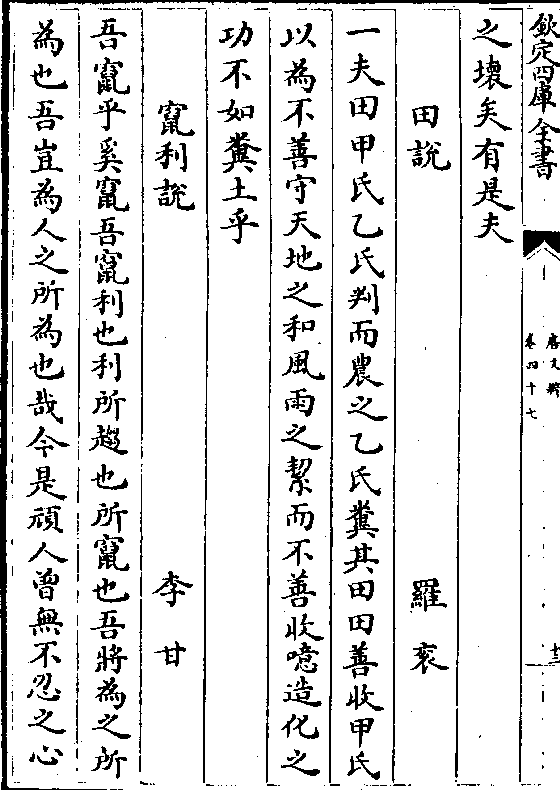 欽定四庫全書
唐文粹
卷四十七
十三
之壞矣有是夫
田說
羅衮
一夫田甲氏乙氏判而農之乙氏糞其田田善收甲氏
以為不善守天地之和風雨之絜而不善收噫造化之
功不如糞土乎
竄利說
李甘
吾竄乎奚竄吾竄利也利所趨也所竄也吾將為之所
為也吾豈為人之所為也哉今是頑人曾無不忍之心